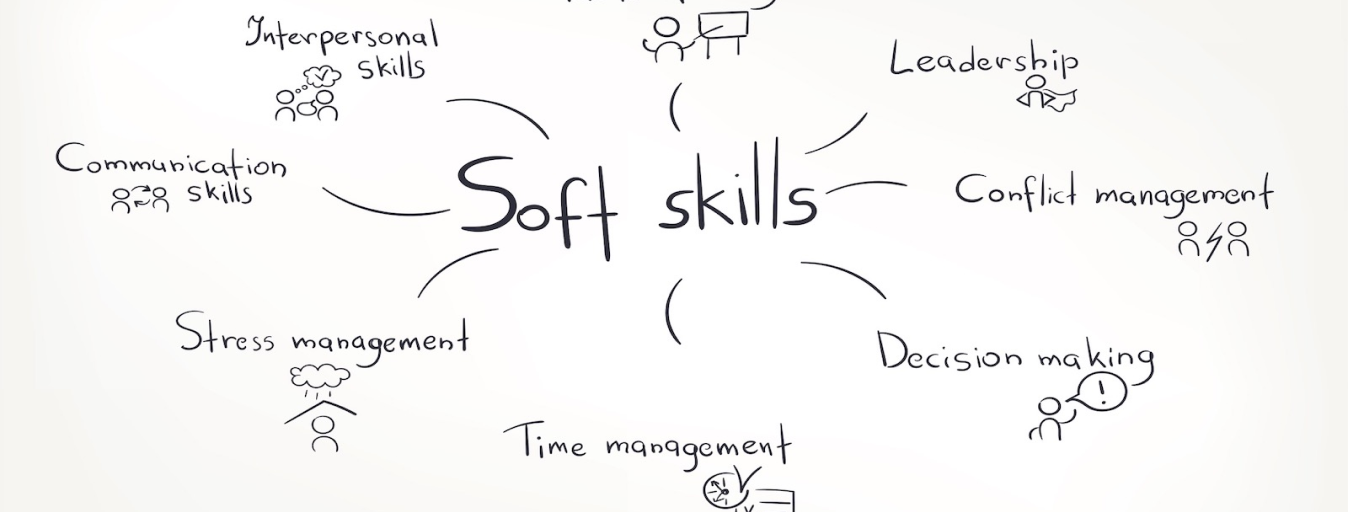 Interpersonal
skills
Leadership
Communication
skills
Soft skills
Conflict management
Stress management
Decision making
!
Time management